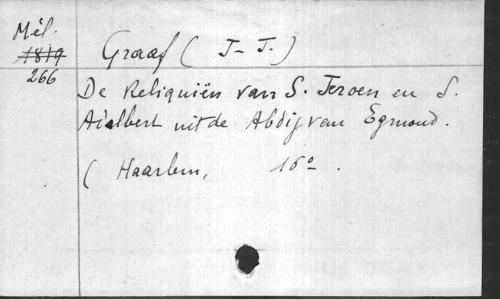 Mél.
1819
266
Graaf ( J- J.)
De Reliquiën van S. Jeroen en S.
Adalbert uit de Abdij van Egmond.
( Haarlem, 16º .